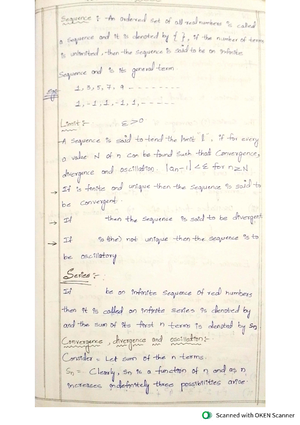 Sequence : An ordered set of all real numbers is called
a sequence and it is denoted by { }, if the number of terms
is unlimited, then the sequence is said to be an infinite
Sequence and is its general term.
1, 3, 5, 7, 9 ----------
1, -1, 1, -1, 1, -------
Limit :- ε>0
A sequence is said to tend the limit l, if for every
a value N of n can be found such that Convergence,
divergence and oscillation. |an-l| < ε for n≥N
→ If is finite and unique then the sequence is said to
be convergent.
→ If then the sequence is said to be divergent
→ If is (the) not unique then the sequence is to
be oscillatory
Series :-
If be an infinite sequence of real numbers
then it is called an infinite series is denoted by
and the sum of its first n terms is denoted by Sn
Convergence, divergence and oscillation :-
Consider = Let sum of the n terms.
Sn = Clearly, Sn is a function of n and as n
increases indefinitely three possibilities arise.
Scanned with OKEN Scanner